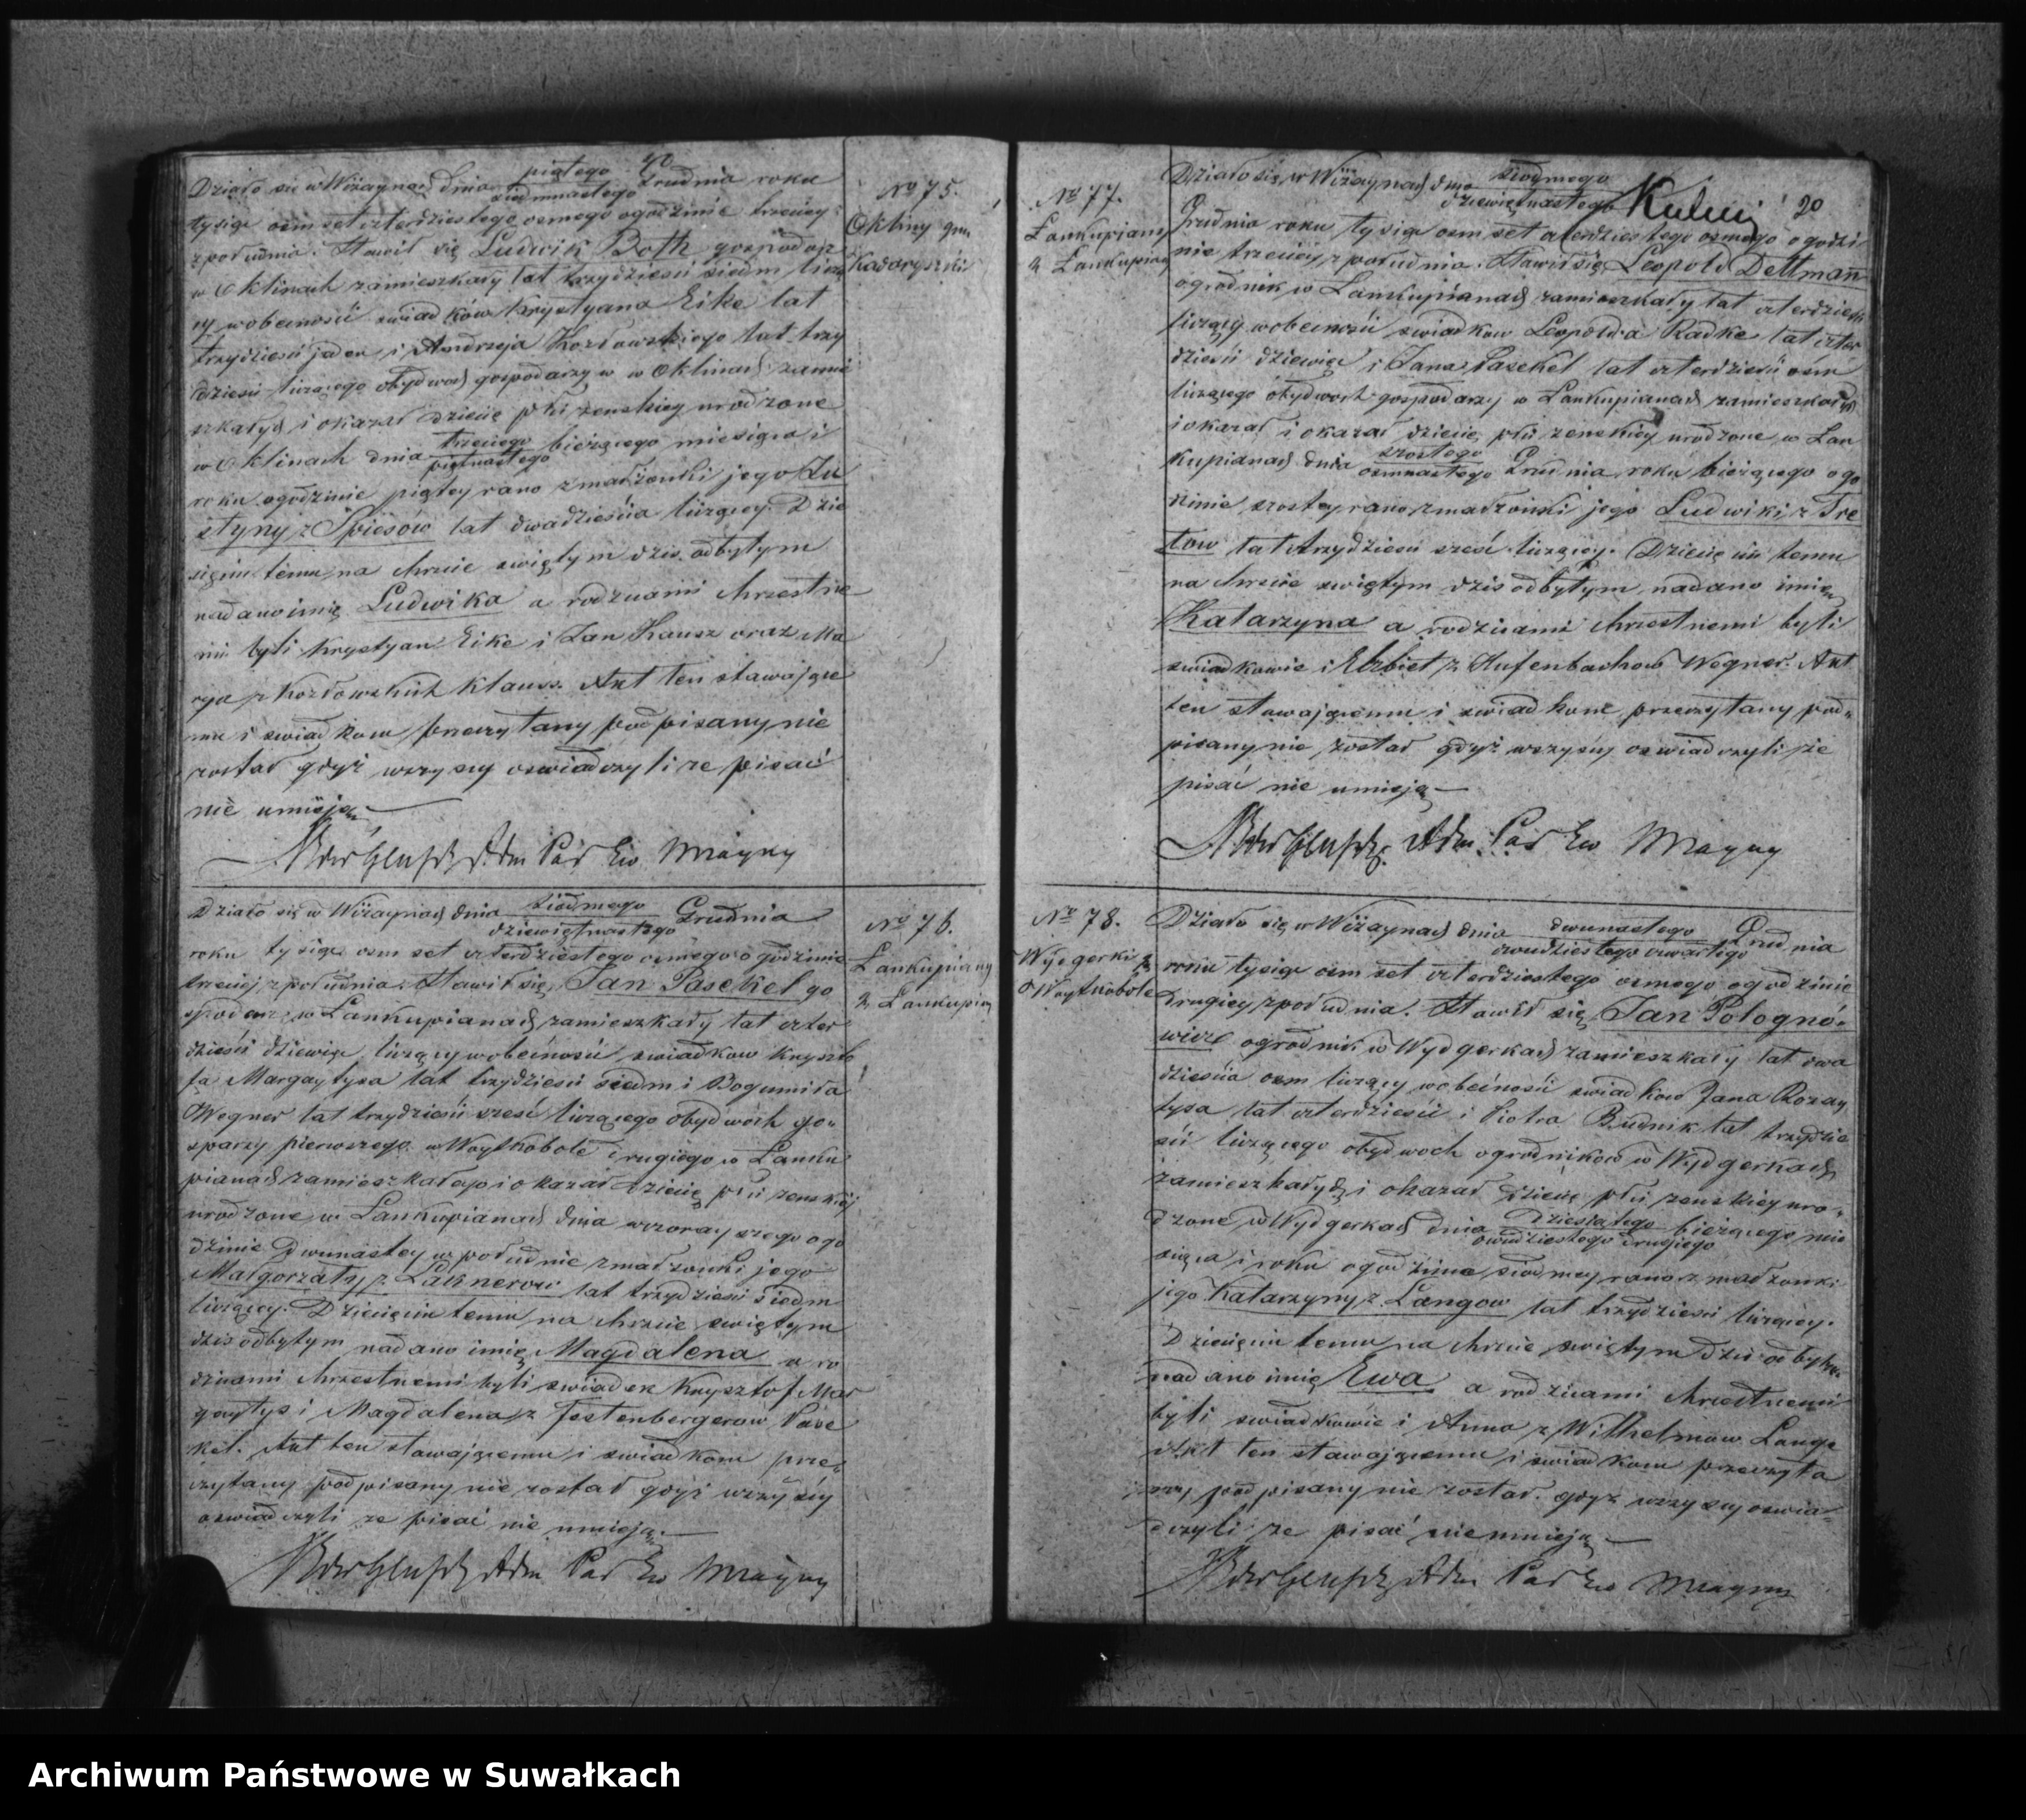 Działo się w Wiżaynach dnia piątego Grudnia roku
siedmnastego
tysiąc osm set czterdziestego osmego ogodzinie trzeciey
zpołudnia. Stawił się Ludwik Both gospodarz
w Oklinach zamieszkały lat trzydzieści siedm licza
cy wobecności swiadków Krystyana Eike lat
trzydzieści jeden i Andrzeja Kozłowskiego lat trzy
dzieści liczącego obydwoch gospodarzy w Oklinach zamie
szkałych i okazał dziecię płci zenskiey urodzone
w Oklinach dnia trzeciego bieżącego miesiąca i
piętnastego
roku ogodzinie piątey rano zmałżonki jego Ju
styny z Spiesów lat dwadzieścia liczącey. Dzie
cięciu temu na chrzcie swiętym dzis odbytym
nadano imię Ludwika a rodzicami chrzestne
mi byli Krystyan Eike i Jan Klausz oraz Ma
rya z Kozłowskich Klausz. Akt ten stawające
mu i swiadkom przeczytany podpisany nie
został gdyż wszyscy oswiadczyli ze pisać
nie umieją.
Adm Par Ew Wizayny
No 75.
Okliny gm
Kadaryszki
Działo się w Wiżaynach dnia siodmego Grudnia
dziewiętnastego
roku tysiąc osm set czterdziestego osmego ogodzinie
trzeciej zpołudnia. Stawił się Jan Pasekel go
spodarz w Lankupianach zamieszkały lat czter
dzieści dziewięć liczący wobecności swiadkow Kryszto
fa Margaytysa lat trzydzieści siedm i Bogumiła
Wegner lat trzydzieści sześć liczącego obydwoch go
sparzy pierwszego w Woytkobole drugiego w Lanku
pianach zamieszkałego i okazał dziecię płci zenskiej
urodzone w Lankupianach dnia wczorayszego ogo
dzinie Dwunastey w południe zmałżonki jego
Małgorzaty z Laknerow lat trzydzieści siedm
liczącey. Dziecięciu temu na chrzcie swiętym
dzis odbytym nadano imię Magdalena a ro
dzicami chrzestnemi byli swiadek Krysztof Mar
gaytys i Magdalena z Festenbergerow Pase
kel. Akt ten stawającemu i swiadkom prze
czytany podpisany nie został gdyż wszyscy
oswiadczyli ze pisać nie umieją.
Adm Par Ew Wizayny
No 76.
Lankupiany
z Lankupian
No 77.
Lankupiany
z Lankupian
20
Działo się w Wiżaynach dnia siodmego
dziewiętnastego
Grudnia roku tysiąc osm set czterdziestego osmego ogodzi
nie trzeciey zpołudnia. Stawił się Leopold Dettmann
ogrodnik w Lankupianach zamieszkały lat czterdzieści
liczący wobecności swiadkow Leopolda Radke lat czter
dzieści dziewięć i Jana Pasekel lat czterdzieści osm
liczącego obydwoch gospodarzy w Lankupianach zamieszkałych
i okazał i okazał dziecię płci zenskiey urodzone w Lan
kupianach dnia szostego Grudnia roku bieżącego ogo
osmnastego
dzinie szostey rano zmałzonki jego Ludwiki z Tre
tow lat trzydzieści sześć liczącey. Dziecięciu temu
na chrzcie swiętym dzis odbytym nadano imię
Katarzyna a rodzicami chrzestnemi byli
swiadkowie i Elzbiet z Hufenbachow Wegner. Akt
ten stawającemu i swiadkom przeczytany pod
pisany nie został gdyż wszyscy oswiadczyli że
pisać nie umieją
Adm Par Ew Wizayny
No 78.
Wydgerki z
Woytkobole
Działo się w Wiżaynach dnia dwunastego Grudnia
dwudziestego czwartego
roku tysiąc osm set czterdziestego osmego ogodzinie
drugiey zpołudnia. Stawił się Jan Pologno
wicz ogrodnik w Wydgerkach zamieszkały lat dwa
dzieścia osm liczący wobecności swiadkow Jana Rozay
tysa lat czterdzieści i Piotra Budnik lat trzydzie
sci liczącego obydwoch ogrodnikow w Wydgerkach
zamieszkałych i okazał dziecię płci zenskiey uro
dzone w Wydgerkach dnia Dziesiątego bieżącego mie
dwudziestego drugiego
siąca i roku ogodzinie siodmey rano zmałżonki
jego Katarzyny z Langow lat trzydzieści liczącey.
Dziecięciu temu na chrzcie swiętym dzis odbytym
nadano imię Ewa a rodzicami chrzestnemi
byli swiadkowie i Anna z Wilhelmow Lange
Akt ten stawającemu i swiadkom przeczyta
ny podpisany nie został gdyż wszyscy oswia
dczyli ze pisać nie umieją
Adm Par Ew Wizayny
Archiwum Państwowe w Suwałkach